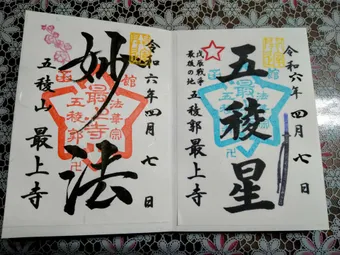 令和六年四月七日
五稜星
戊辰戦争
最後の地
五稜郭 最上寺
函館
令和六年四月七日
妙法
五稜山 最上寺
函館
法華宗
最上寺
五稜郭